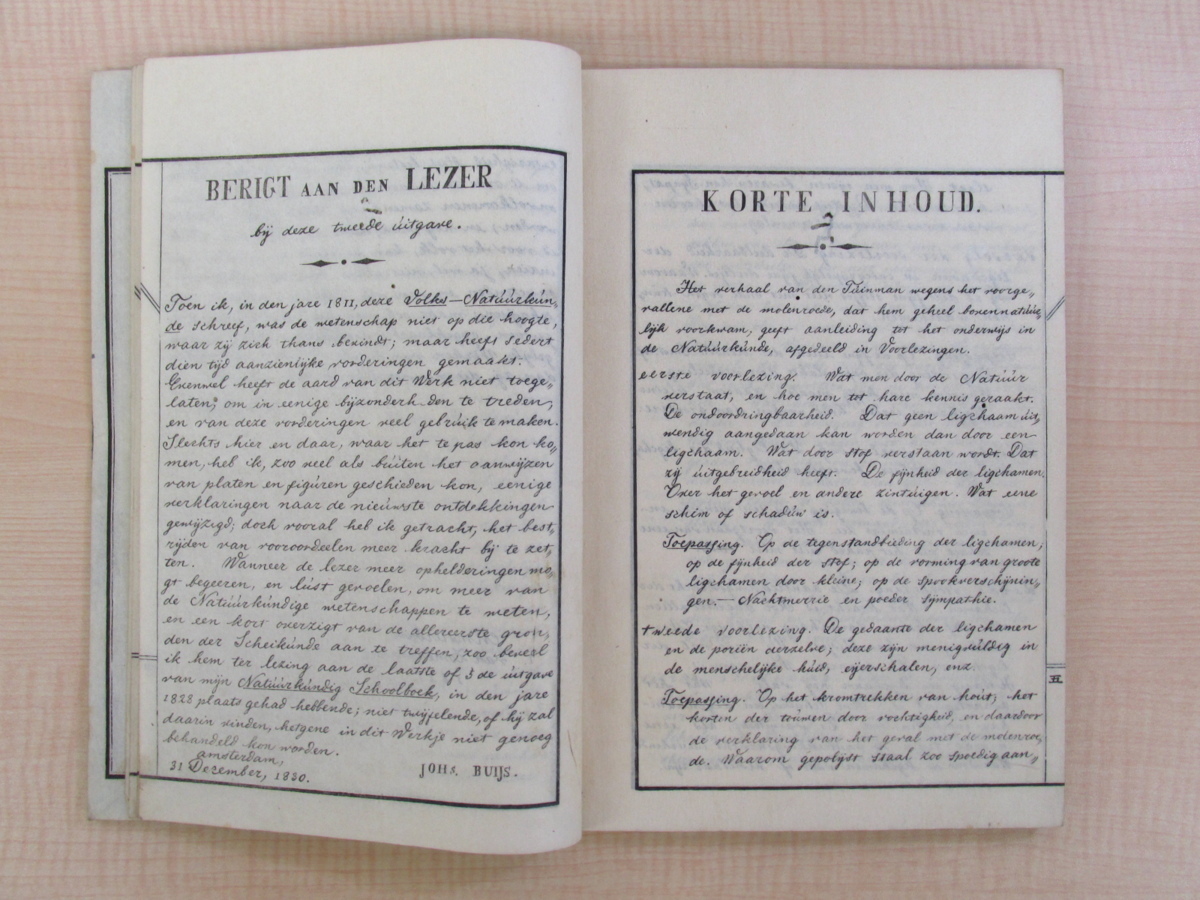 BERIGT AAN DEN LEZER
bij deze tweede úitgave.
Toen ik, in den jare 1811, deze Volks-Natúúrkún,
de schreef, was de wetenschap niet op die hoogte,
waar zij zich thans bevindt; maar heeft sedert
dien tijd aanzienlijke vorderingen gemaakt.
Evenwel heeft de aard van dit Werk niet toege-
laten, om in eenige bijzonderheden te treden,
en van deze vorderingen veel gebrúik te maken.
Slechts hier en daar, waar het te pas kon ko,,
men, heb ik, zoo veel als búiten het aanwijzen
van platen en figúren geschieden kon, eenige
verklaringen naar de nieúwste ontdekkingen
gewijzigd; doch vooral heb ik getracht, het best,
rijden van vooroordeelen meer kracht bij te zet,
ten. Wanneer de lezer meer ophelderingen mo,
gt begeeren, en lúst gevoelen, om meer van
de Natúúrkúndige wetenschappen te weten,
en een kort overzigt van de allereerste gron,
den der Scheikúnde aan te treffen, zoo beveel
ik hem ter lezing aan de laatste of 3 de úitgave
van mijn Natúúrkúndig Schoolboek, in den jare
1828 plaats gehad hebbende; niet twijfelende, of hij zal
daarin vinden, hetgene in dit Werkje niet genoeg
behandeld kon worden.
amsterdam,
31 December, 1830.
JOHs. BUIJS.
KORTE INHOUD.
Het verhaal van den Túinman wegens het voorge-
vallene met de molenroede, dat hem geheel bovennatúúr,
lijk voorkwam, geeft aanleiding tot het onderwijs in
de Natúúrkúnde, afgedeeld in Voorlezingen.
eerste voorlezing. Wat men door de Natúúr
verstaat, en hoe men tot hare kennis geraakt.
De ondoordringbaarheid. Dat geen ligchaam úit,
wendig aangedaan kan worden dan door een
ligchaam. Wat door stof verstaan wordt. Dat
zij úitgebreidheid heeft. De fijnheid der ligchamen.
Over het gevoel en andere zintúigen. Wat eene
schim of schadúw is.
Toepassing. Op de tegenstandbieding der ligchamen;
op de fijnheid der stof; op de vorming van groote
ligchamen door kleine; op de spookverschijnin,
gen.— Nachtmerrie en poeder sympathie.
tweede voorlezing. De gedaante der ligchamen
en de poriën derzelve; deze zijn menigvúldig in
de menschelijke húid, eijerschalen, enz.
Toepassing. Op het kromtrekken van hout; het
korten der touwen door vochtigheid, en daardoor
de verklaring van het geval met de molenroe,
de. Waarom gepolijst staal zoo spoedig aan,,
五